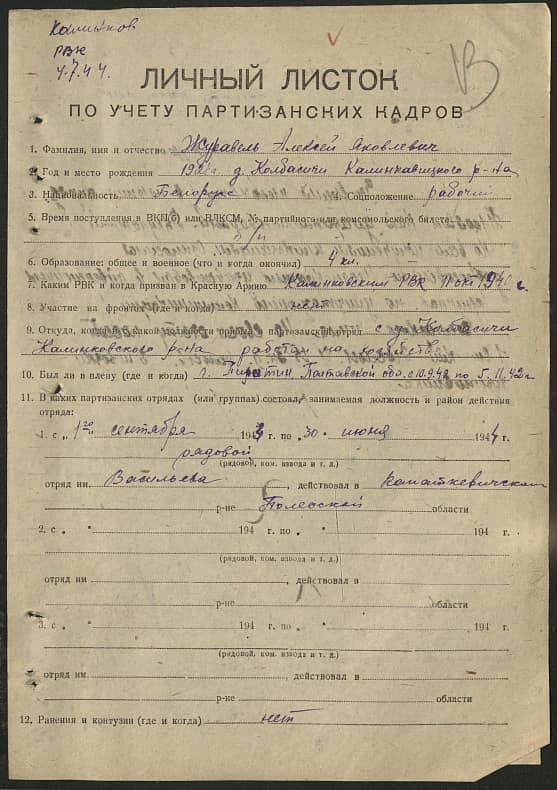 РВК
4.7.44.
ЛИЧНЫЙ ЛИСТОК
ПО УЧЕТУ ПАРТИЗАНСКИХ КАДРОВ
1. Фамилия, имя и отчество Журавель Алексей Яковлевич
2. Год и место рождения д. Колбасичи Калинкавицкого р-на
3. Национальность Белорус Соцположение рабочий
5. Время поступления в ВКП(б) или ВЛКСМ, № партийного или комсомольского билета
б/п
6. Образование: общее и военное (что и когда окончил) 4 кл.
7. Каким РВК и когда призван в Красную Армию Калинковским РВК 1940 г.
8. Участие на фронтах (где и когда)
9. Откуда, когда, с какой должности прибыл в партизанский отряд с д. Колбасичи
Калинковского р-на работал на
10. Был ли в плену (где и когда) г. Пирятин Полтавской обл. с 10.9.42 по 5.11.42 г.
11. В каких партизанских отрядах (или группах) состоял, занимаемая должность и район действия
отряда:
1. с „1го“ сентября 1943 г. по „30“ июня 1944 г.
рядовой
(рядовой, ком. взвода и т. д.)
отряд им. Васильева действовал в Капаткевичском
р-не Полесской области
2. с „ “ 194 г. по „ “ 194 г.
(рядовой, ком. взвода и т. д.)
отряд им. , действовал в
р-не области
3. с „ “ 194 г. по „ “ 194 г.
(рядовой, ком. взвода и т. д.)
отряд им. , действовал в
р-не области
12. Ранения и контузии (где и когда) нет